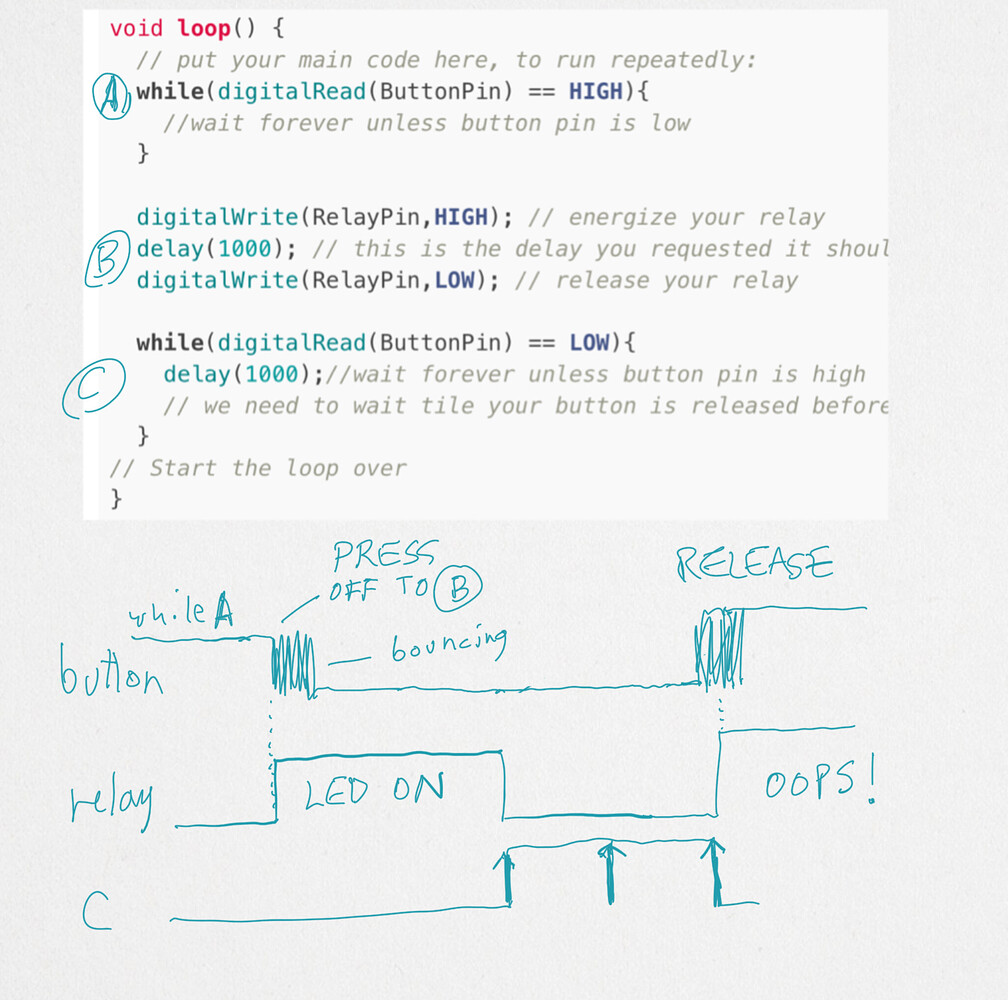 void loop() {
// put your main code here, to run repeatedly:
A while(digitalRead(ButtonPin) == HIGH){
//wait forever unless button pin is low
}
digitalWrite(RelayPin,HIGH); // energize your relay
B delay(1000); // this is the delay you requested it shoul
digitalWrite(RelayPin,LOW); // release your relay
while(digitalRead(ButtonPin) == LOW){
C delay(1000);//wait forever unless button pin is high
// we need to wait tile your button is released before
}
// Start the loop over
}
PRESS
OFF TO B
RELEASE
while A
bouncing
button
relay
LED ON
OOPS!
C